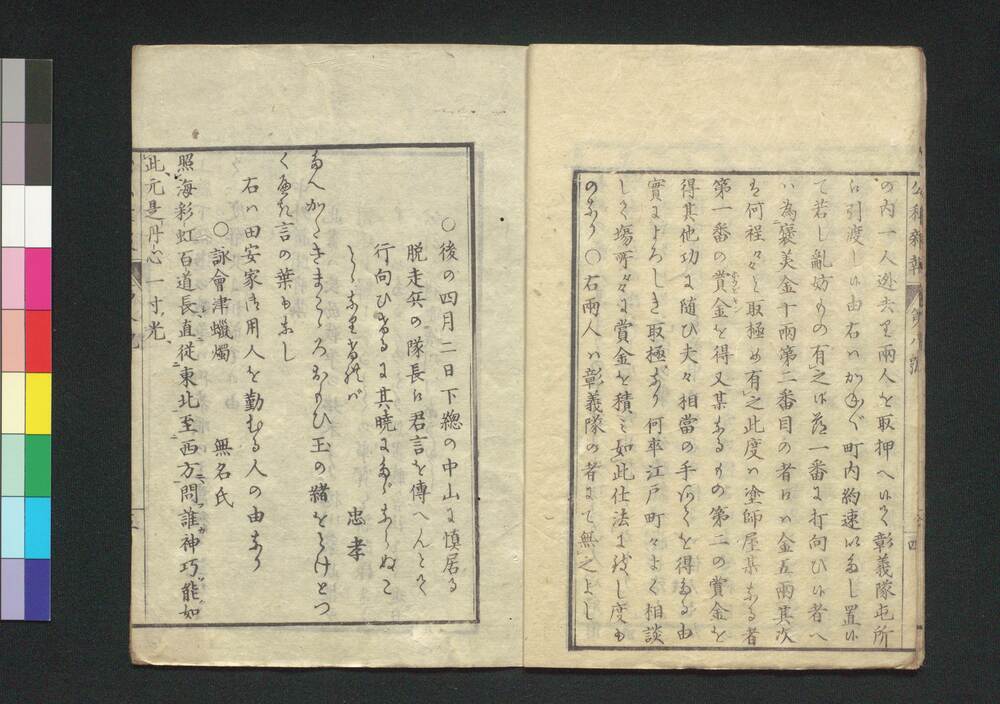 の内一人迯去り両人を取押へ候て彰義隊屯所
に引渡し候由右はかねて町内約速いたし置候
て若し亂妨もの有之候節一番に打向ひ候者へ
ハ為褒美金十兩第二番目の者にハ金五兩其次
は何程々々と取極め有之此度ハ塗師屋某なる者
第一番の賞金を得又某なるもの第二の賞金を
得其他功に随ひ夫々相當の手あてを得たる由
實によろしき取極なり何卒江戸町々よく相談
しく場所々々に賞金を積ミ如此仕法に致し度も
のなり 〇右兩人ハ彰義隊の者にて無之よし
〇後の四月二日下總の中山に慎居る
脱走兵の隊長に君言を傳へんとて
行向ひけるに其曉に
忠孝
玉の緒をとけとつ
く言の葉もなし
右ハ田安家御用人を勤むる人の由なり
〇詠會津蠟燭 無名氏
照海彩虹百道長直從東北至西方問誰神巧能如
此元是丹心一寸光